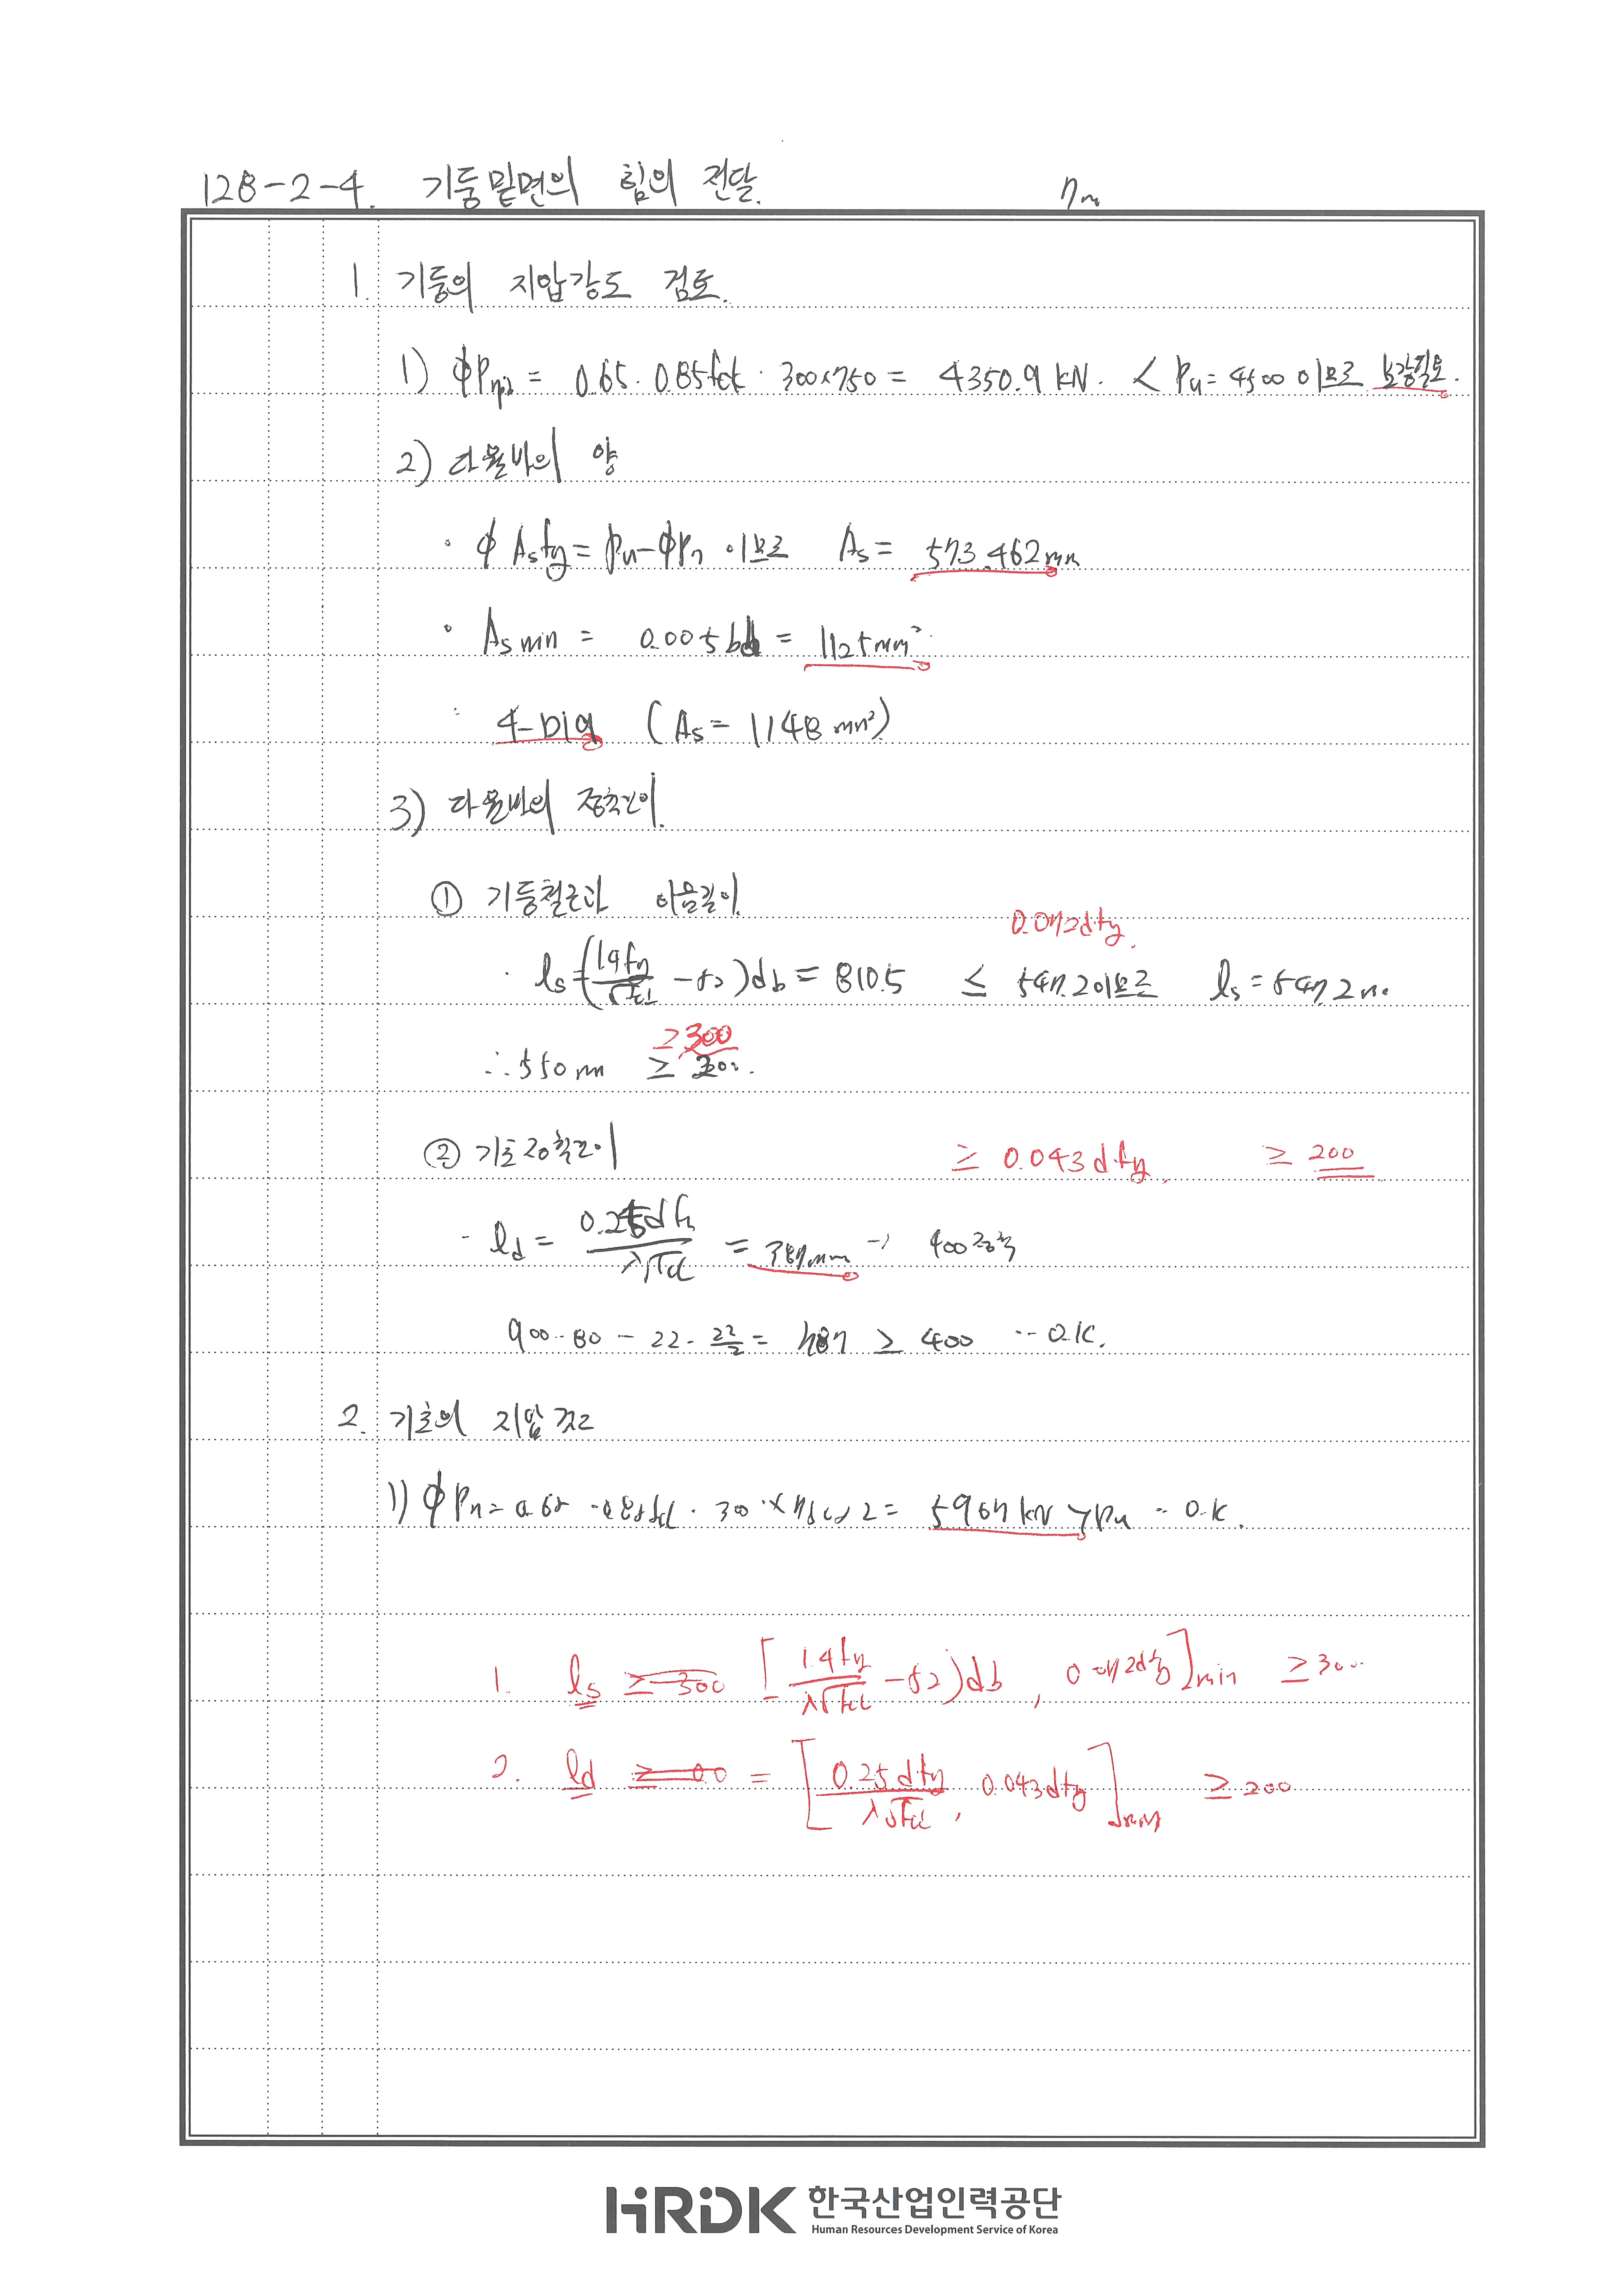 128-2-4. 기둥밑면의 힘의 전달.
1. 기둥의 지압강도 검토.
1) ϕPn = 0.65 · 0.85fck · 300×750 = 4350.9 kN. < Pu = 4500 이므로 보강필요.
2) 다월바의 양
· ϕ Asfy = Pu-ϕPn 이므로 As = 573.462mm
· As min = 0.005 = 1125mm²
4-D19 (As = 1148 mm²)
3) 다월바의 정착길이.
① 기둥철근과 이음길이.
0.072dfy.
· ls = (1.4fy/√fck - 52)db = 810.5 ≤ 547.2이므로 ls = 547.2
≥300
∴ 550mm ≥ 300.
② 기초정착길이 ≥ 0.043dfy. ≥ 200
· ld = 0.25dfy/λ√fck = 387mm → 400정착
900-80-22-22/2 = 787 ≥ 400 ∴ O.K.
2. 기초의 지압검토
1) ϕPn = 0.65 · 0.85fck · 300 × 750 2 = 5967kN > Pu ∴ O.K.
1. ls ≥ 300 [(1.4fy/λ√fck - 52)db, 0.072dfy]min ≥ 300
2. ld = [0.25dfy/λ√fck, 0.043dfy] ≥ 200
HRDK 한국산업인력공단
Human Resources Development Service of Korea